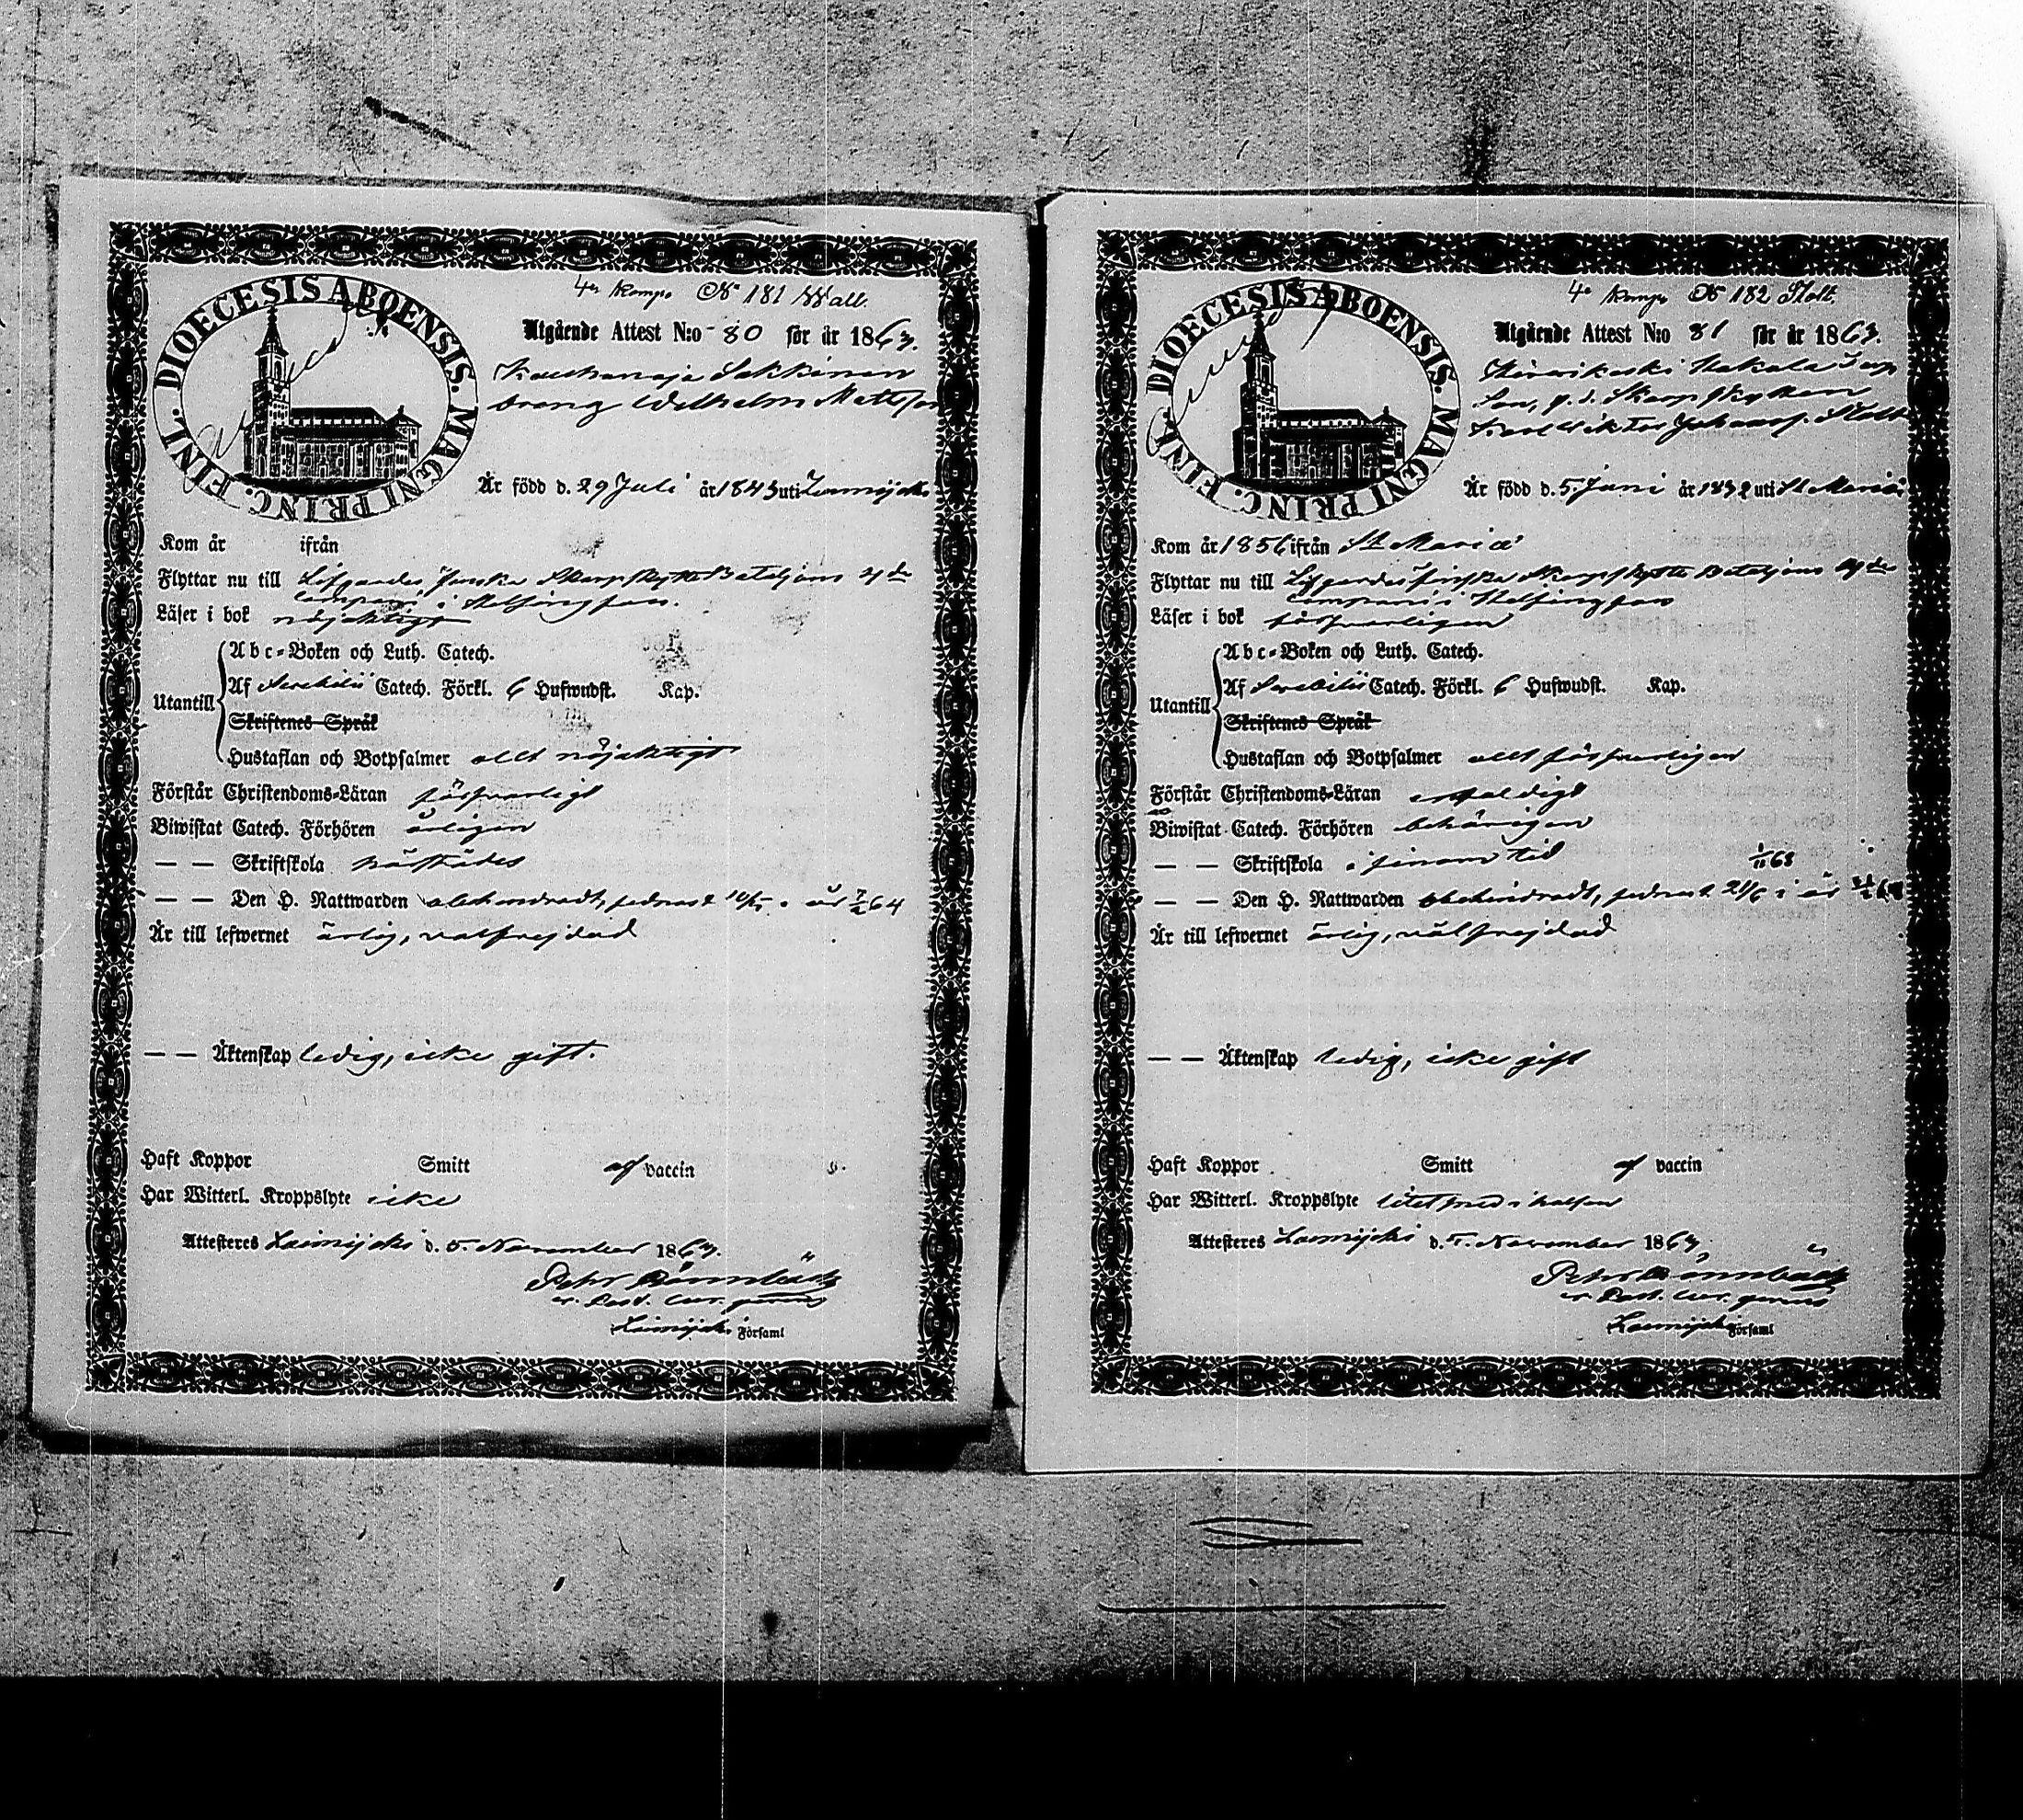 DIOECESIS ABOENSIS. MAGNI PRINC. FINL.
4de Komp. No 181 Wall.
Utgående Attest N:o 80 för år 1863.
Sakkinen
dräng Wilhelm Mattsson
Är född d. 29 Juli år 1843 uti Loimijoki
Kom år ifrån
Flyttar nu till Lifgardes finska Skarpskytte Bataljons 4de
Compani i Helsingfors.
Läser i bok nöjaktigt
Utantill
Abc-Boken och Luth. Catech.
Af Svebilii Catech. Förkl. 6 Hufwudst. Kap.
Skriftenes Språk
Hustaflan och Botpsalmer allt nöjaktigt
Förstår Christendoms-Läran försvarligt
Biwistat Catech. Förhören årligen
— — Skriftskola
— — Den H. Nattwarden obehindradt, sednast i år
Är till lefwernet ärlig, välfrejdad
— — Äktenskap ledig, icke gift.
Haft Koppor Smitt af vaccin
Har Witterl. Kroppslyte icke
Attesteres Loimijoki d. 5. November 1863.
Petr Rönnbäck
v. Past. Cur. gerens
Loimijoki Församl
DIOECESIS ABOENSIS. MAGNI PRINC. FINL.
4de Komp. No 182 Stolt.
Utgående Attest N:o 81 för år 1863.
Hirvikoski
Son, Skarpskytten
Karl Wiktor Johanss. Stolt
Är född d. 5 Juni år 1832 uti St Mariæ
Kom år 1856 ifrån St Mariæ
Flyttar nu till Lifgardes finska Skarpskytte Bataljons 4de
Compani i Helsingfors
Läser i bok försvarligen
Utantill
Abc-Boken och Luth. Catech.
Af Svebilii Catech. Förkl. 6 Hufwudst. Kap.
Skriftenes Språk
Hustaflan och Botpsalmer allt försvarligen
Förstår Christendoms-Läran
Biwistat Catech. Förhören behörigen
— — Skriftskola i sinom tid
— — Den H. Nattwarden obehindradt, sednast 21/6 i år
Är till lefwernet ärlig, välfrejdad
— — Äktenskap ledig, icke gift
Haft Koppor Smitt af vaccin
Har Witterl. Kroppslyte i halsen
Attesteres Loimijoki d. 5. November 1863,
Petr Rönnbäck
v. Past. Cur. gerens
Loimijoki Församl